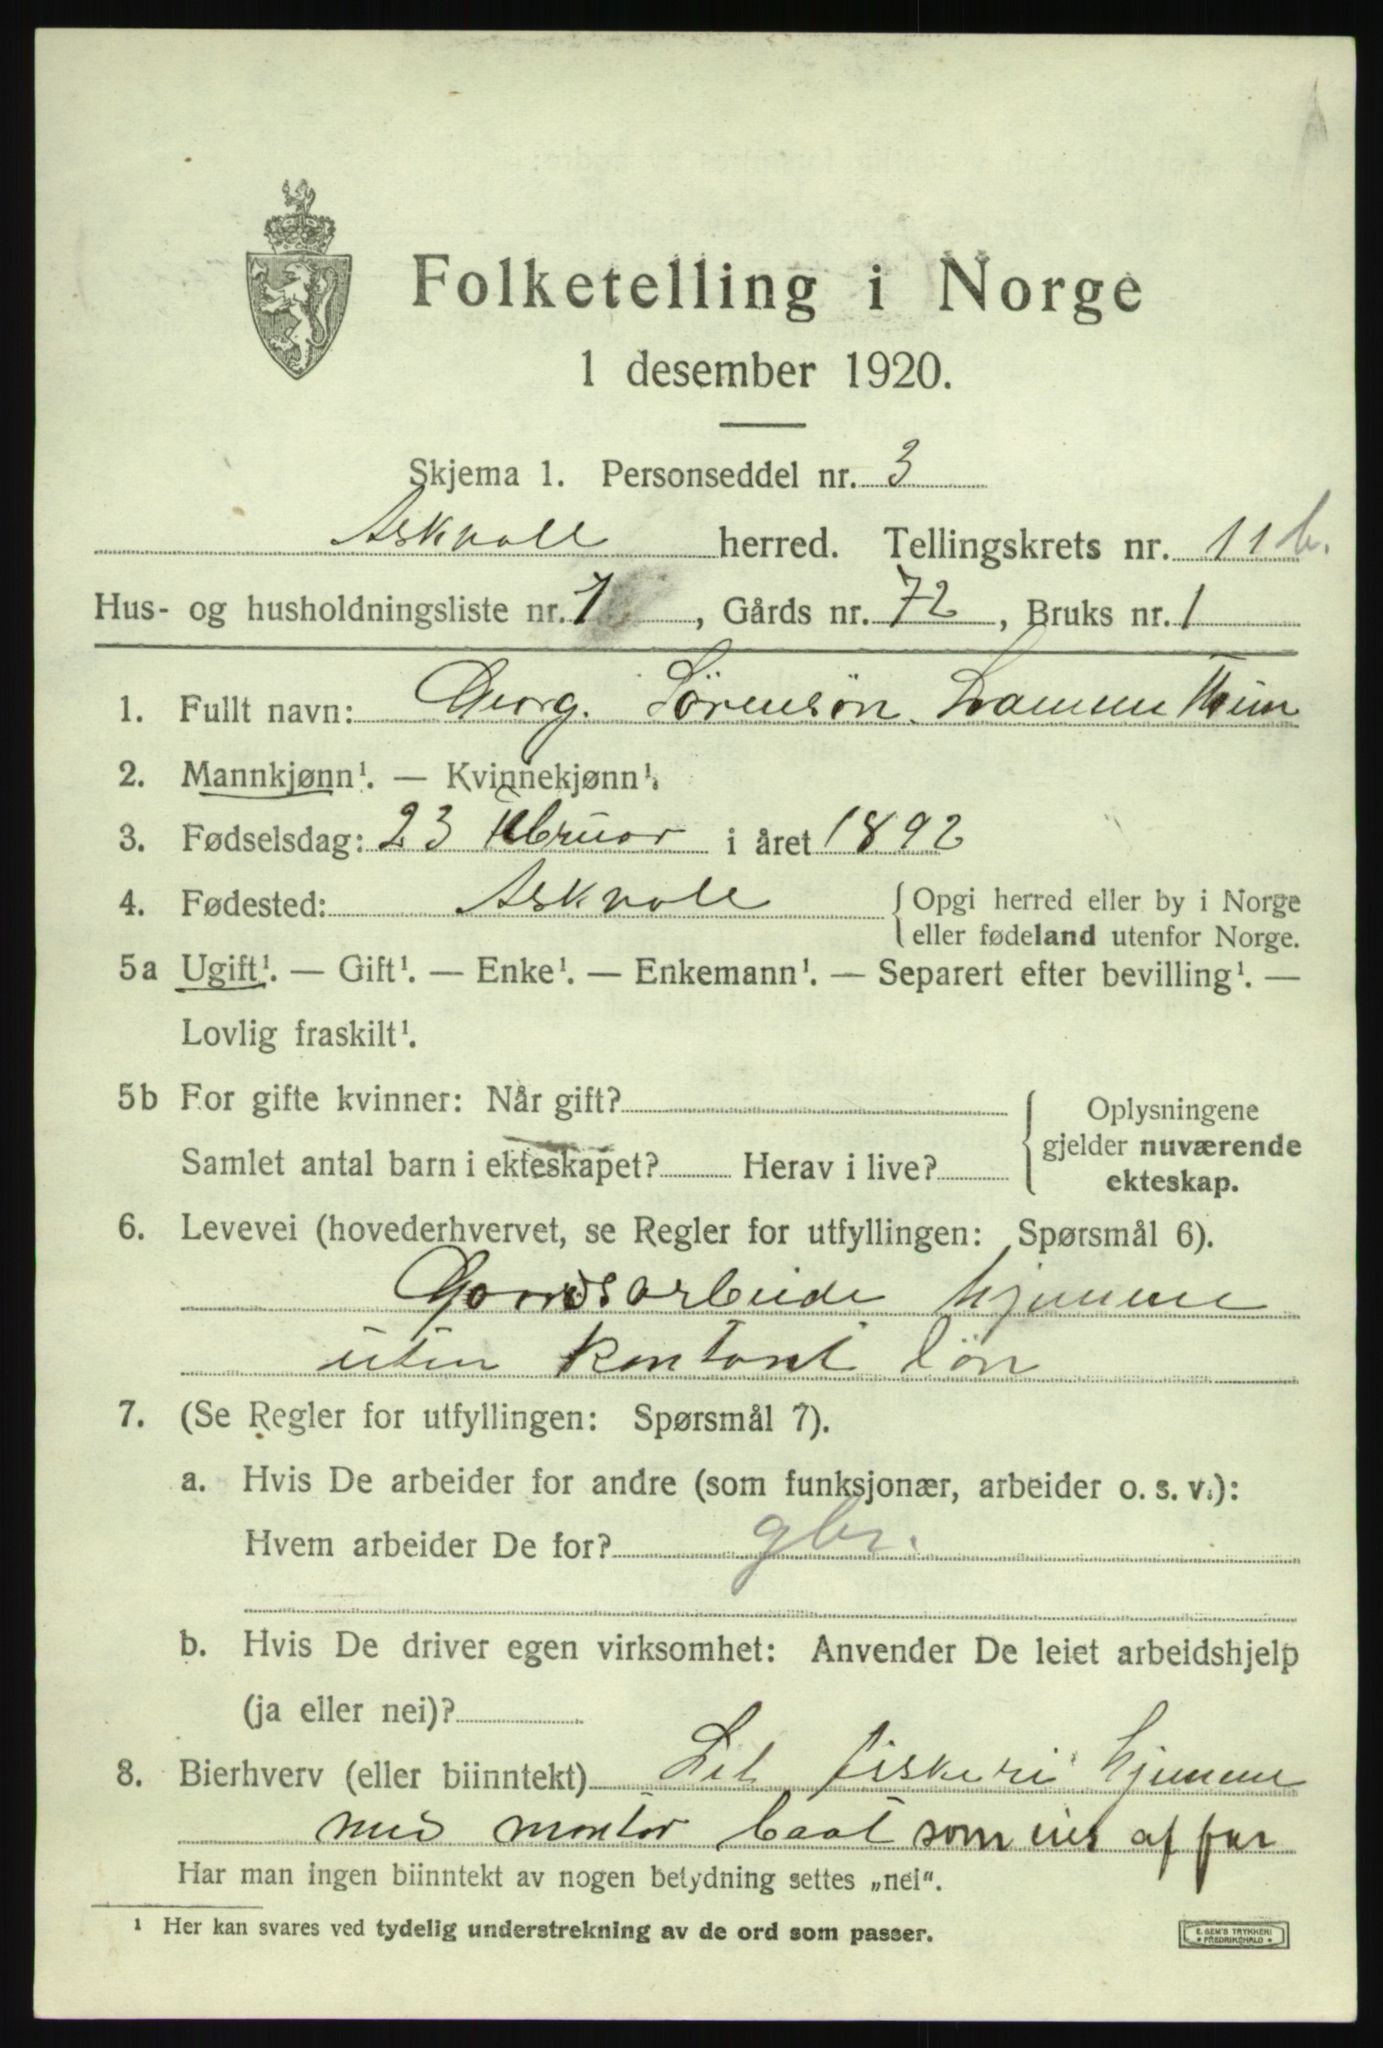 Folketelling i Norge
1 desember 1920.
Skjema 1. Personseddel nr. 3
Askvoll herred. Tellingskrets nr. 11 b.
Hus- og husholdningsliste nr. 1, Gårds nr. 72, Bruks nr. 1
1. Fullt navn: Georg. Sörensön
2. Mannkjønn¹. — Kvinnekjønn¹.
3. Fødselsdag: 23 Februar i året 1892
4. Fødested: Askvoll { Opgi herred eller by i Norge
eller fødeland utenfor Norge.
5a Ugift¹. — Gift¹. — Enke¹. — Enkemann¹. — Separert efter bevilling¹. —
Lovlig fraskilt¹.
5b For gifte kvinner: Når gift? { Oplysningene
gjelder nuværende
Samlet antal barn i ekteskapet? Herav i live?
ekteskap.
6. Levevei (hovederhvervet, se Regler for utfyllingen: Spørsmål 6).
Gaardsarbeide hjemme
uten kontant lön
7. (Se Regler for utfyllingen: Spørsmål 7).
a. Hvis De arbeider for andre (som funksjonær, arbeider o. s. v.):
Hvem arbeider De for? gbr.
b. Hvis De driver egen virksomhet: Anvender De leiet arbeidshjelp
(ja eller nei)?
8. Bierhverv (eller biinntekt) Lit fiskeri hjemme
med montor baat som eies af far
Har man ingen biinntekt av nogen betydning settes „nei“.
¹ Her kan svares ved tydelig understrekning av de ord som passer.
E. SEM'S TRYKKERI
FREDRIKSHALD